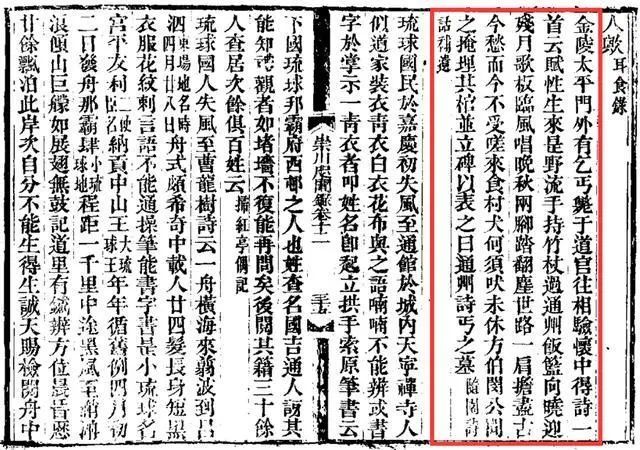 人毀耳食錄
金陵太平門外有乞丐斃于道官往相驗懷中得詩一
首云賦性生來是野流手持竹杖過通州飯籃向曉迎
殘月歌板臨風唱晚秋兩腳踏翻塵世路一肩擔盡古
今愁而今不受嗟來食村犬何須吠未休方伯閔公聞
之掩埋其棺並立碑以表之曰通州詩丐之墓隨園詩
話補遺
琉球國民於嘉慶初失風至通館於城內天寧禪寺人
似道家裝衣青衣白衣花布與之語喃喃不能辨或書
字於掌示一青衣者叩姓名卽起立拱手索原筆書云
崇川咫聞錄卷十一
下國琉球那霸府西邨之人也姓查名國吉通人訝其
能知詩觀者如堵墻不復能再問矣後閱其籍三十餘
人查居次餘俱百姓云摘紅亭偶記
琉球國人失風至曹龍樹詩云一舟橫海來翦波到呂
泗東場地名時四月廿八日舟式頗希奇中載人廿四髮長身短黑
衣服花紋刺言語不能通操筆能書字書是小琉球名
宮平友利納貢中山王大琉球王年年循舊例四月初
二日發舟那霸肆小琉球地程距一千里中途黑風至
浪傾山巨艨如展翅無鼓記道里有鍼辨方位晨昏歷
廿餘飄泊此岸次自分不能生得生誠天賜檢閱舟中